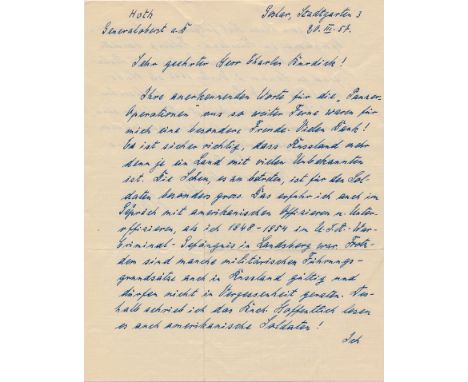 Hoth
Generaloberst a.D
Goslar, Stadtgarten 3
20. III. 57.
Sehr geehrter Herr Charles Burdick!
Ihre anerkennenden Worte für die „Panzer-
Operationen" aus so weiter Ferne waren für
mich eine besondere Freude. Vielen Dank!
Es ist sicher richtig, dass Russland mehr
denn je ein Land mit vielen Unbekannten
ist. Die Scheu, es zu betreten, ist für den Sol-
daten besonders gross. Das erfuhr ich auch im
Gespräch mit amerikanischen Offizieren u. Unter-
offizieren, als ich 1948-1954 im U.S.A.-War-
Criminal-Gefängnis in Landsberg war. Trotz-
dem sind manche militärischen Führungs-
grundsätze auch in Russland gültig und
dürfen nicht in Vergessenheit geraten. Des-
halb schrieb ich das Buch. Hoffentlich lesen
es auch amerikanische Soldaten!
Ich